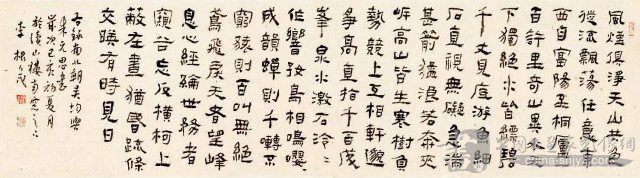 風煙俱淨天山共色
從流飄蕩任意東
西自富陽至桐廬一
百許里奇山異水天
下獨絕水皆縹碧
千丈見底游魚細
石直視無礙急湍
甚箭猛浪若奔夾
岸高山皆生寒樹負
勢競上互相軒邈
爭高直指千百成
峯泉水激石泠泠
作響好鳥相鳴嚶嚶
成韻蟬則千囀不
窮猿則百叫無絕
鳶飛戾天者望峰
息心經綸世務者
窺谷忘反橫柯上
蔽在晝猶昏疏條
交暎有時見日
右錄南北朝吳均與
朱元思書
歲次己亥初夏月
於山樓南窗之下
李